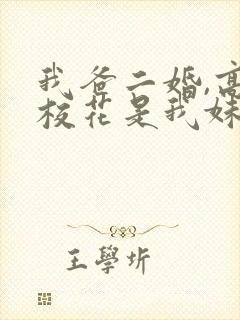 我爸二婚,高
校花是我妹
王學圻